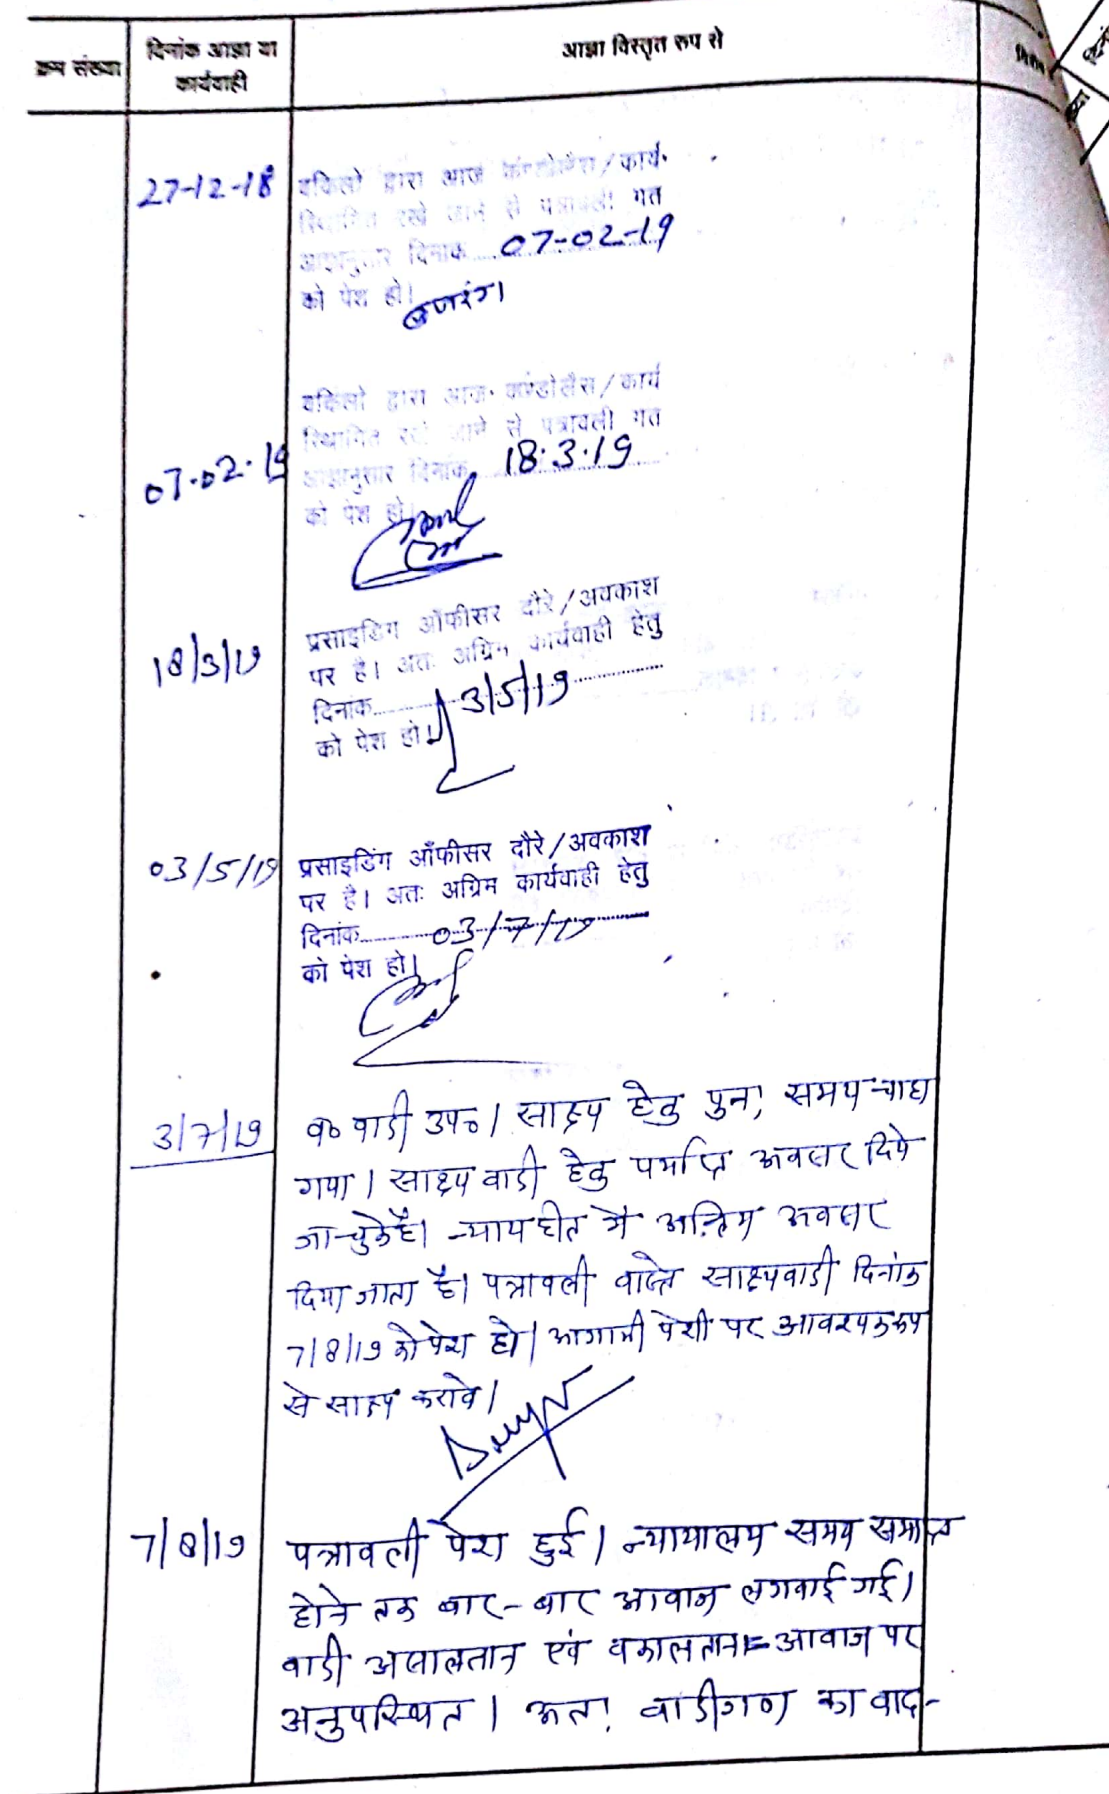 क्रम संख्या
दिनांक आज्ञा या
कार्यवाही
आज्ञा विस्तृत रूप से
27-12-18
वकिलो द्वारा आज कण्डोलैंस/कार्य
स्थिगित रखे जाने से पत्रावली गत
आज्ञानुसार दिनांक 07-02-19
को पेश हो।
बजरंग
07.02.19
वकिलो द्वारा आज कण्डोलैंस/कार्य
स्थिगित रखे जाने से पत्रावली गत
आज्ञानुसार दिनांक 18.3.19
को पेश हो।
18/3/19
प्रसाइडिंग ऑफीसर दौरे/अवकाश
पर है। अतः अग्रिम कार्यवाही हेतु
दिनांक 3/5/19
को पेश हो।
03/5/19
प्रसाइडिंग ऑफीसर दौरे/अवकाश
पर है। अतः अग्रिम कार्यवाही हेतु
दिनांक 03/7/19
को पेश हो।
3/7/19
व० वादी उप०। साक्ष्य हेतु पुनः समय चाहा
गया। साक्ष्य वादी हेतु पर्याप्त अवसर दिये
जा चुके है। न्यायहीत मे अन्तिम अवसर
दिया जाता है। पत्रावली वास्ते साक्ष्यवादी दिनांक
7/8/19 को पेश हो। आगामी पेशी पर आवश्यक रूप
से साक्ष्य करावे।
7/8/19
पत्रावली पेश हुई। न्यायालय समय समाप्त
होने तक बार-बार आवाज लगवाई गई।
वादी असालतान एवं वकालतान आवाज पर
अनुपस्थित। अतः वादीगण का वाद-